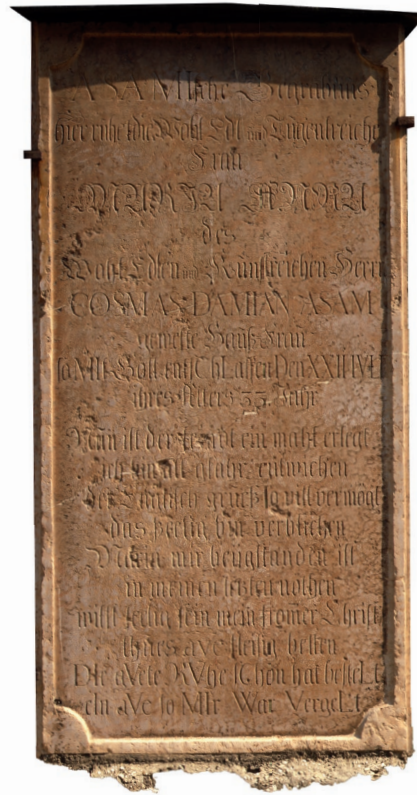 ASAMische Begräbnus
hier ruhet die Wohl Edl und Tugentreiche
Frau
MARIA ANNA
des
Wohl Edlen und Kunstreichen Herrn
COSMAS DAMIAN ASAM
geweste Hauß Frau
so MIt Gott entsChLaffen Den XXII IVLI
ihres Alters 33 Jahr
Nun ist der feindt ein mahl erlegt
ich bin all gfahr entwichen
der Englisch grueß so vill vermögt
das Seelig bin verblichen
Maria mir beygstanden ist
in meinen letzten nöthen
willst seelig sein mein fromer Christ
thues ave fleisig betten
DIe gVete RVhe sChon hat bestelLt
eIn aVe so MIr War VergeLt